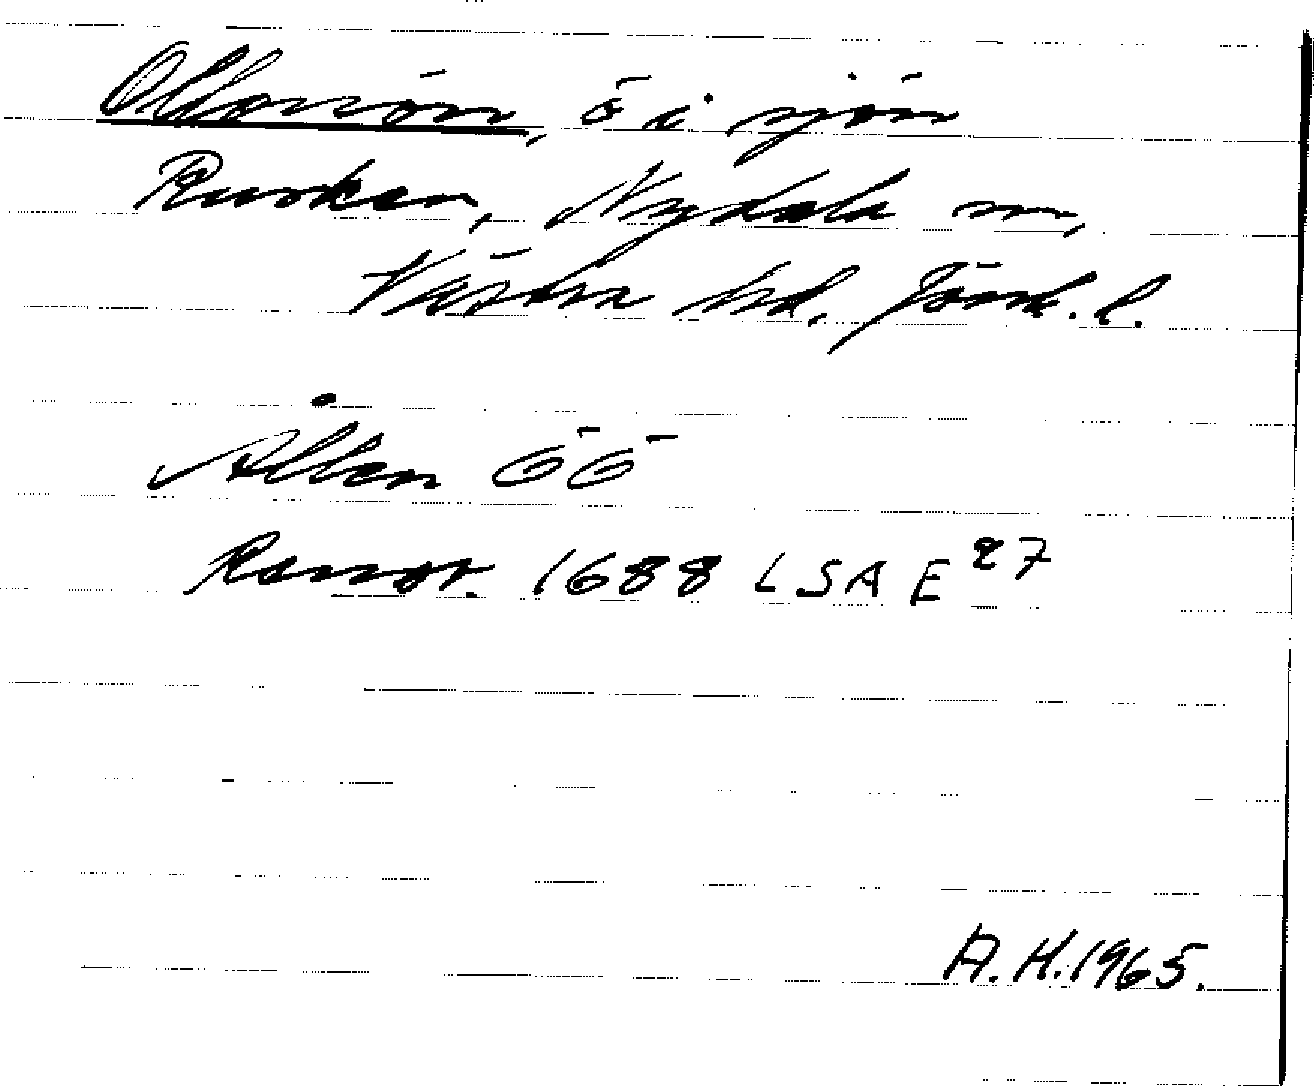 Ottonön, ö i sjön
Rusken, Nydala sn,
Västra hd, Jönk. l.
Ålten öö
Rannsr. 1688 LSA E27
A. H. 1965.